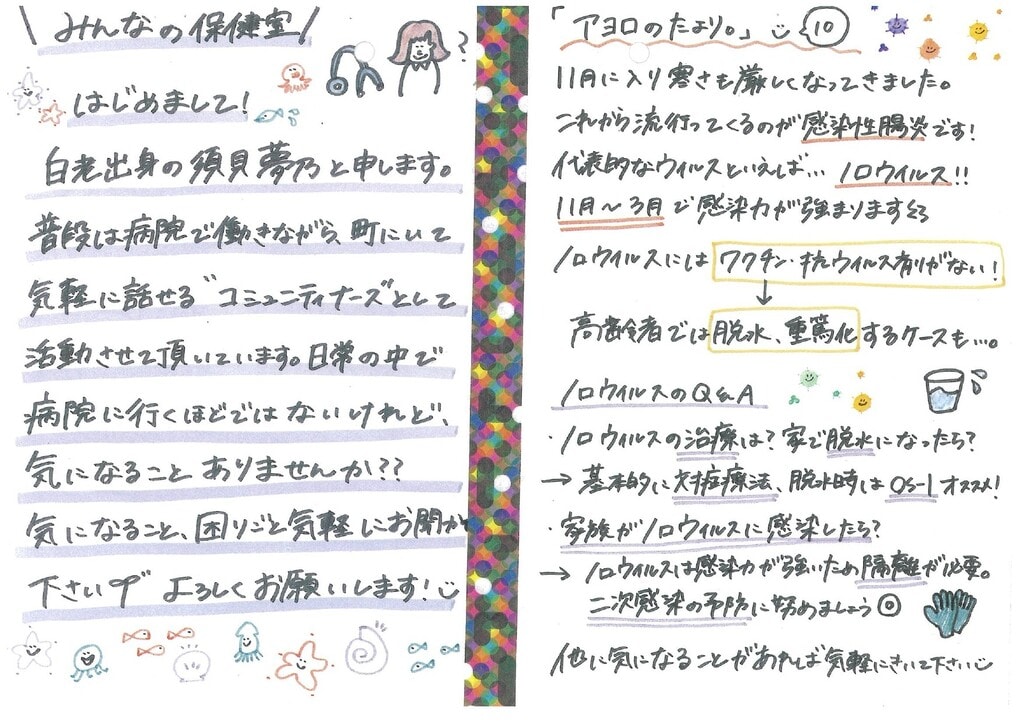 みんなの保健室
はじめまして!
白老出身の須貝夢乃と申します。
普段は病院で働きながら、町にいて
気軽に話せる"コミュニティナーズ"として
活動させて頂いています。日常の中で
病院に行くほどではないけれど、
気になることありませんか??
気になること、困りごと気軽にお聞かせ
下さい よろしくお願いします!
?
「アヨロのたより。」 10
11月に入り寒さも厳しくなってきました。
これから流行ってくるのが感染性腸炎です!
代表的なウィルスといえば… ノロウィルス!!
11月~3月で感染力が強まります
ノロウィルスにはワクチン・抗ウィルス剤がない!
↓
高齢者では脱水、重篤化するケースも…。
ノロウィルスのQ&A
・ノロウィルスの治療は?家で脱水になったら?
→基本的に対症療法、脱水時はOS-1オススメ!
・家族がノロウィルスに感染したら?
→ノロウィルスは感染力が強いため隔離が必要。
二次感染の予防に努めましょう◎
他に気になることがあれば気軽にきいて下さい